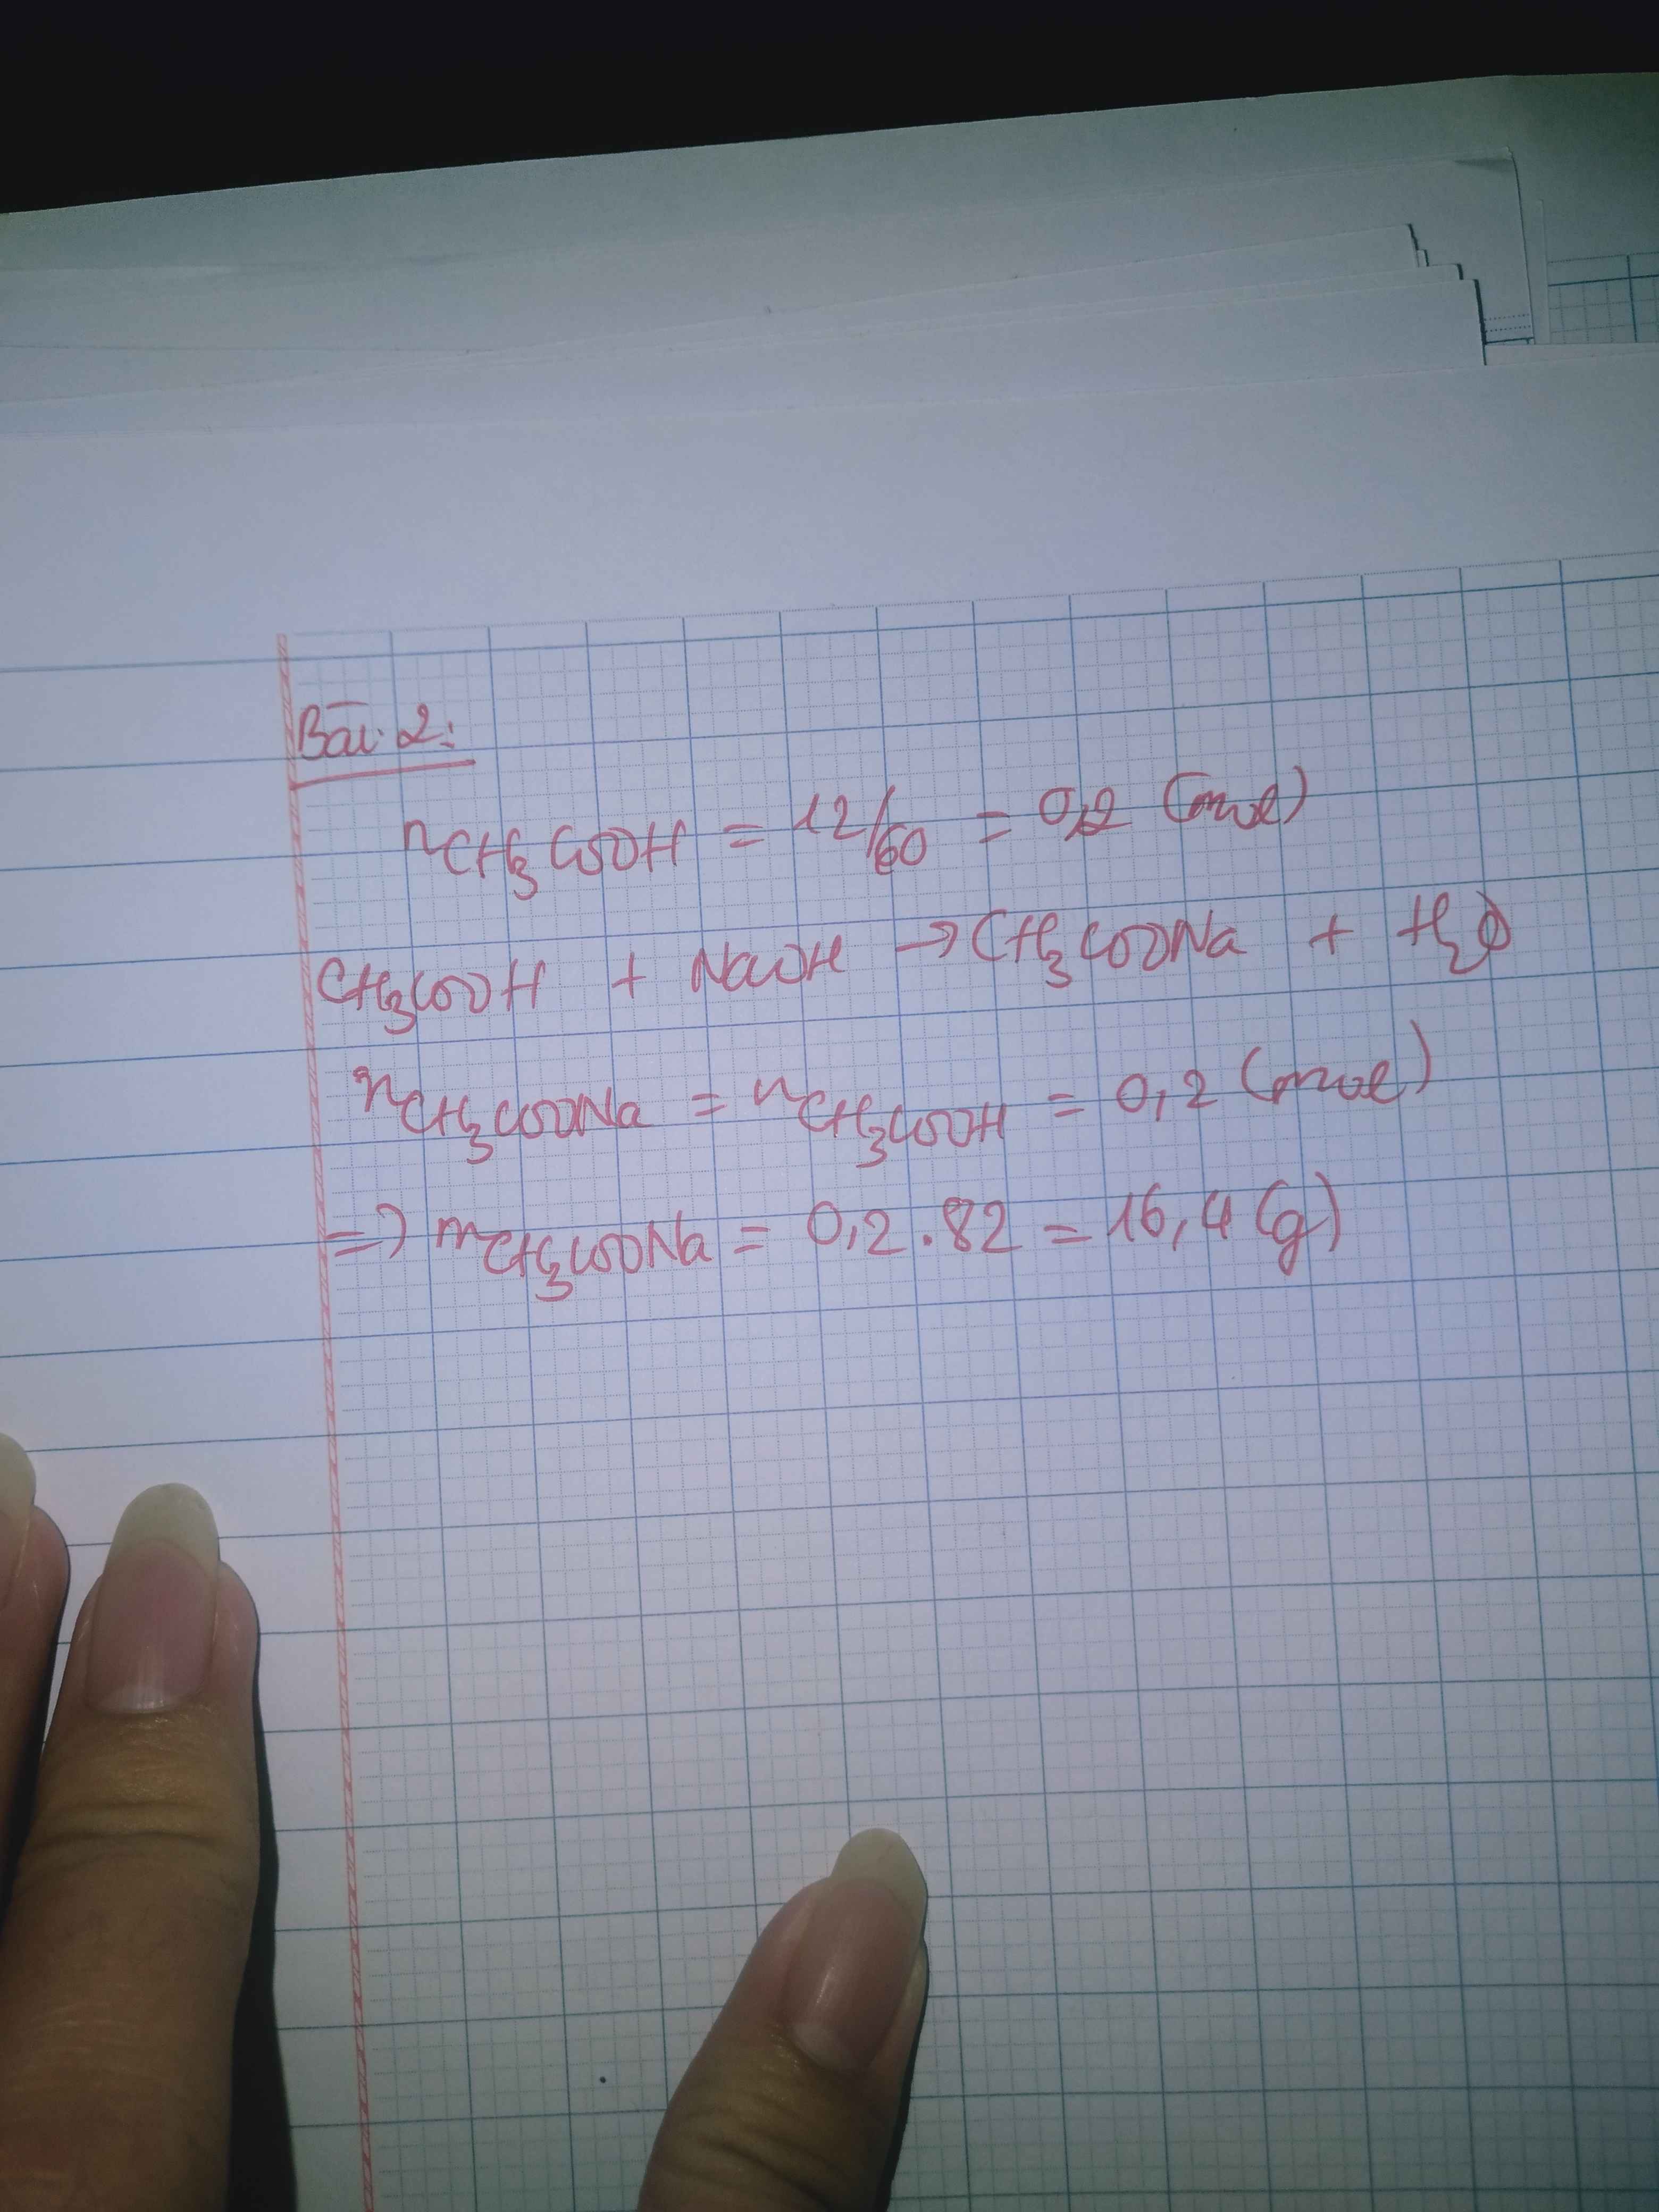 Bài 2:
nCH₃COOH = 12/60 = 0,2 (mol)
CH₃COOH + NaOH → CH₃COONa + H₂O
nCH₃COONa = nCH₃COOH = 0,2 (mol)
=> mCH₃COONa = 0,2 . 82 = 16,4 (g)